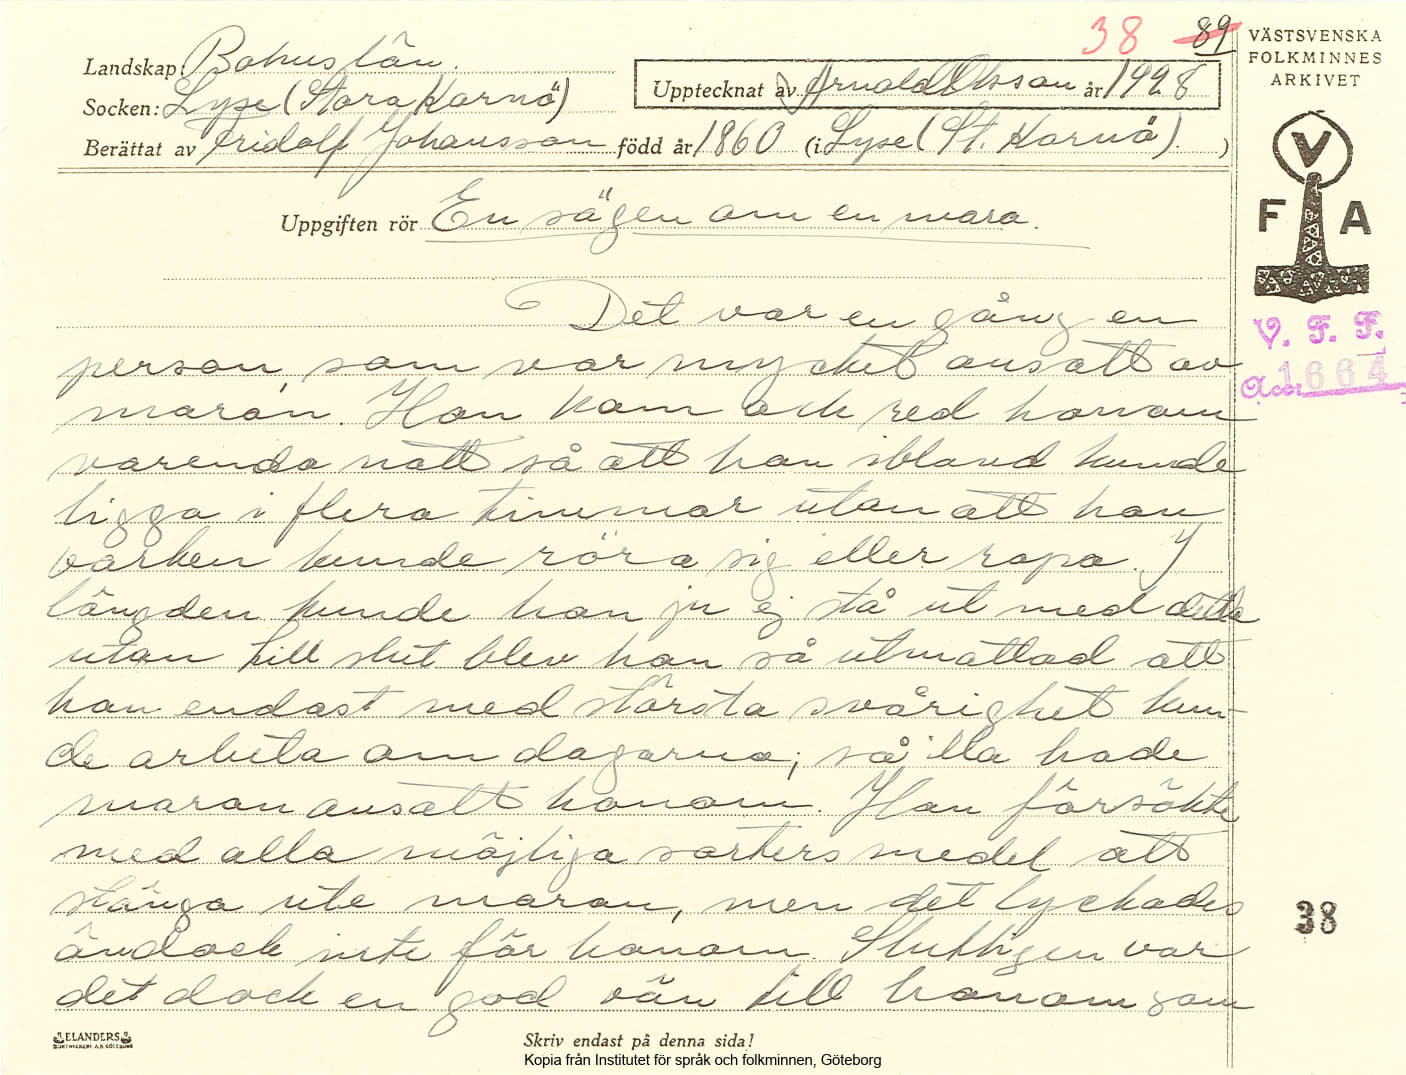 38 89
VÄSTSVENSKA
FOLKMINNES
ARKIVET
Landskap: Bohuslän.
Upptecknat av Arnold Olsson år 1928
Socken: Lyse (Stora Kornö)
Berättat av Fridolf Johansson född år 1860 (i Lyse (St. Kornö). )
V
F A
Uppgiften rör En sägen om en mara.
V. F. F.
Acc: 1664
Det var en gång en
person, som var mycket ansatt av
maran. Hon kom ock red honom
varenda natt så att han ibland kunde
ligga i flera timmar utan att han
varken kunde röra sig eller ropa. I
längden kunde han ju ej stå ut med detta
utan till slut blev han så utmattad att
han endast med största svårighet kun-
de arbeta om dagarna; så illa hade
maran ansatt honom. Han försökte
med alla möjliga sorters medel att
stänga ute maran, men det lyckades
ändock inte för honom. Slutligen var
det dock en god vän till honom som
38
ELANDERS
BOKTRYCKERI A.B. GÖTEBORG
Skriv endast på denna sida!
Kopia från Institutet för språk och folkminnen, Göteborg